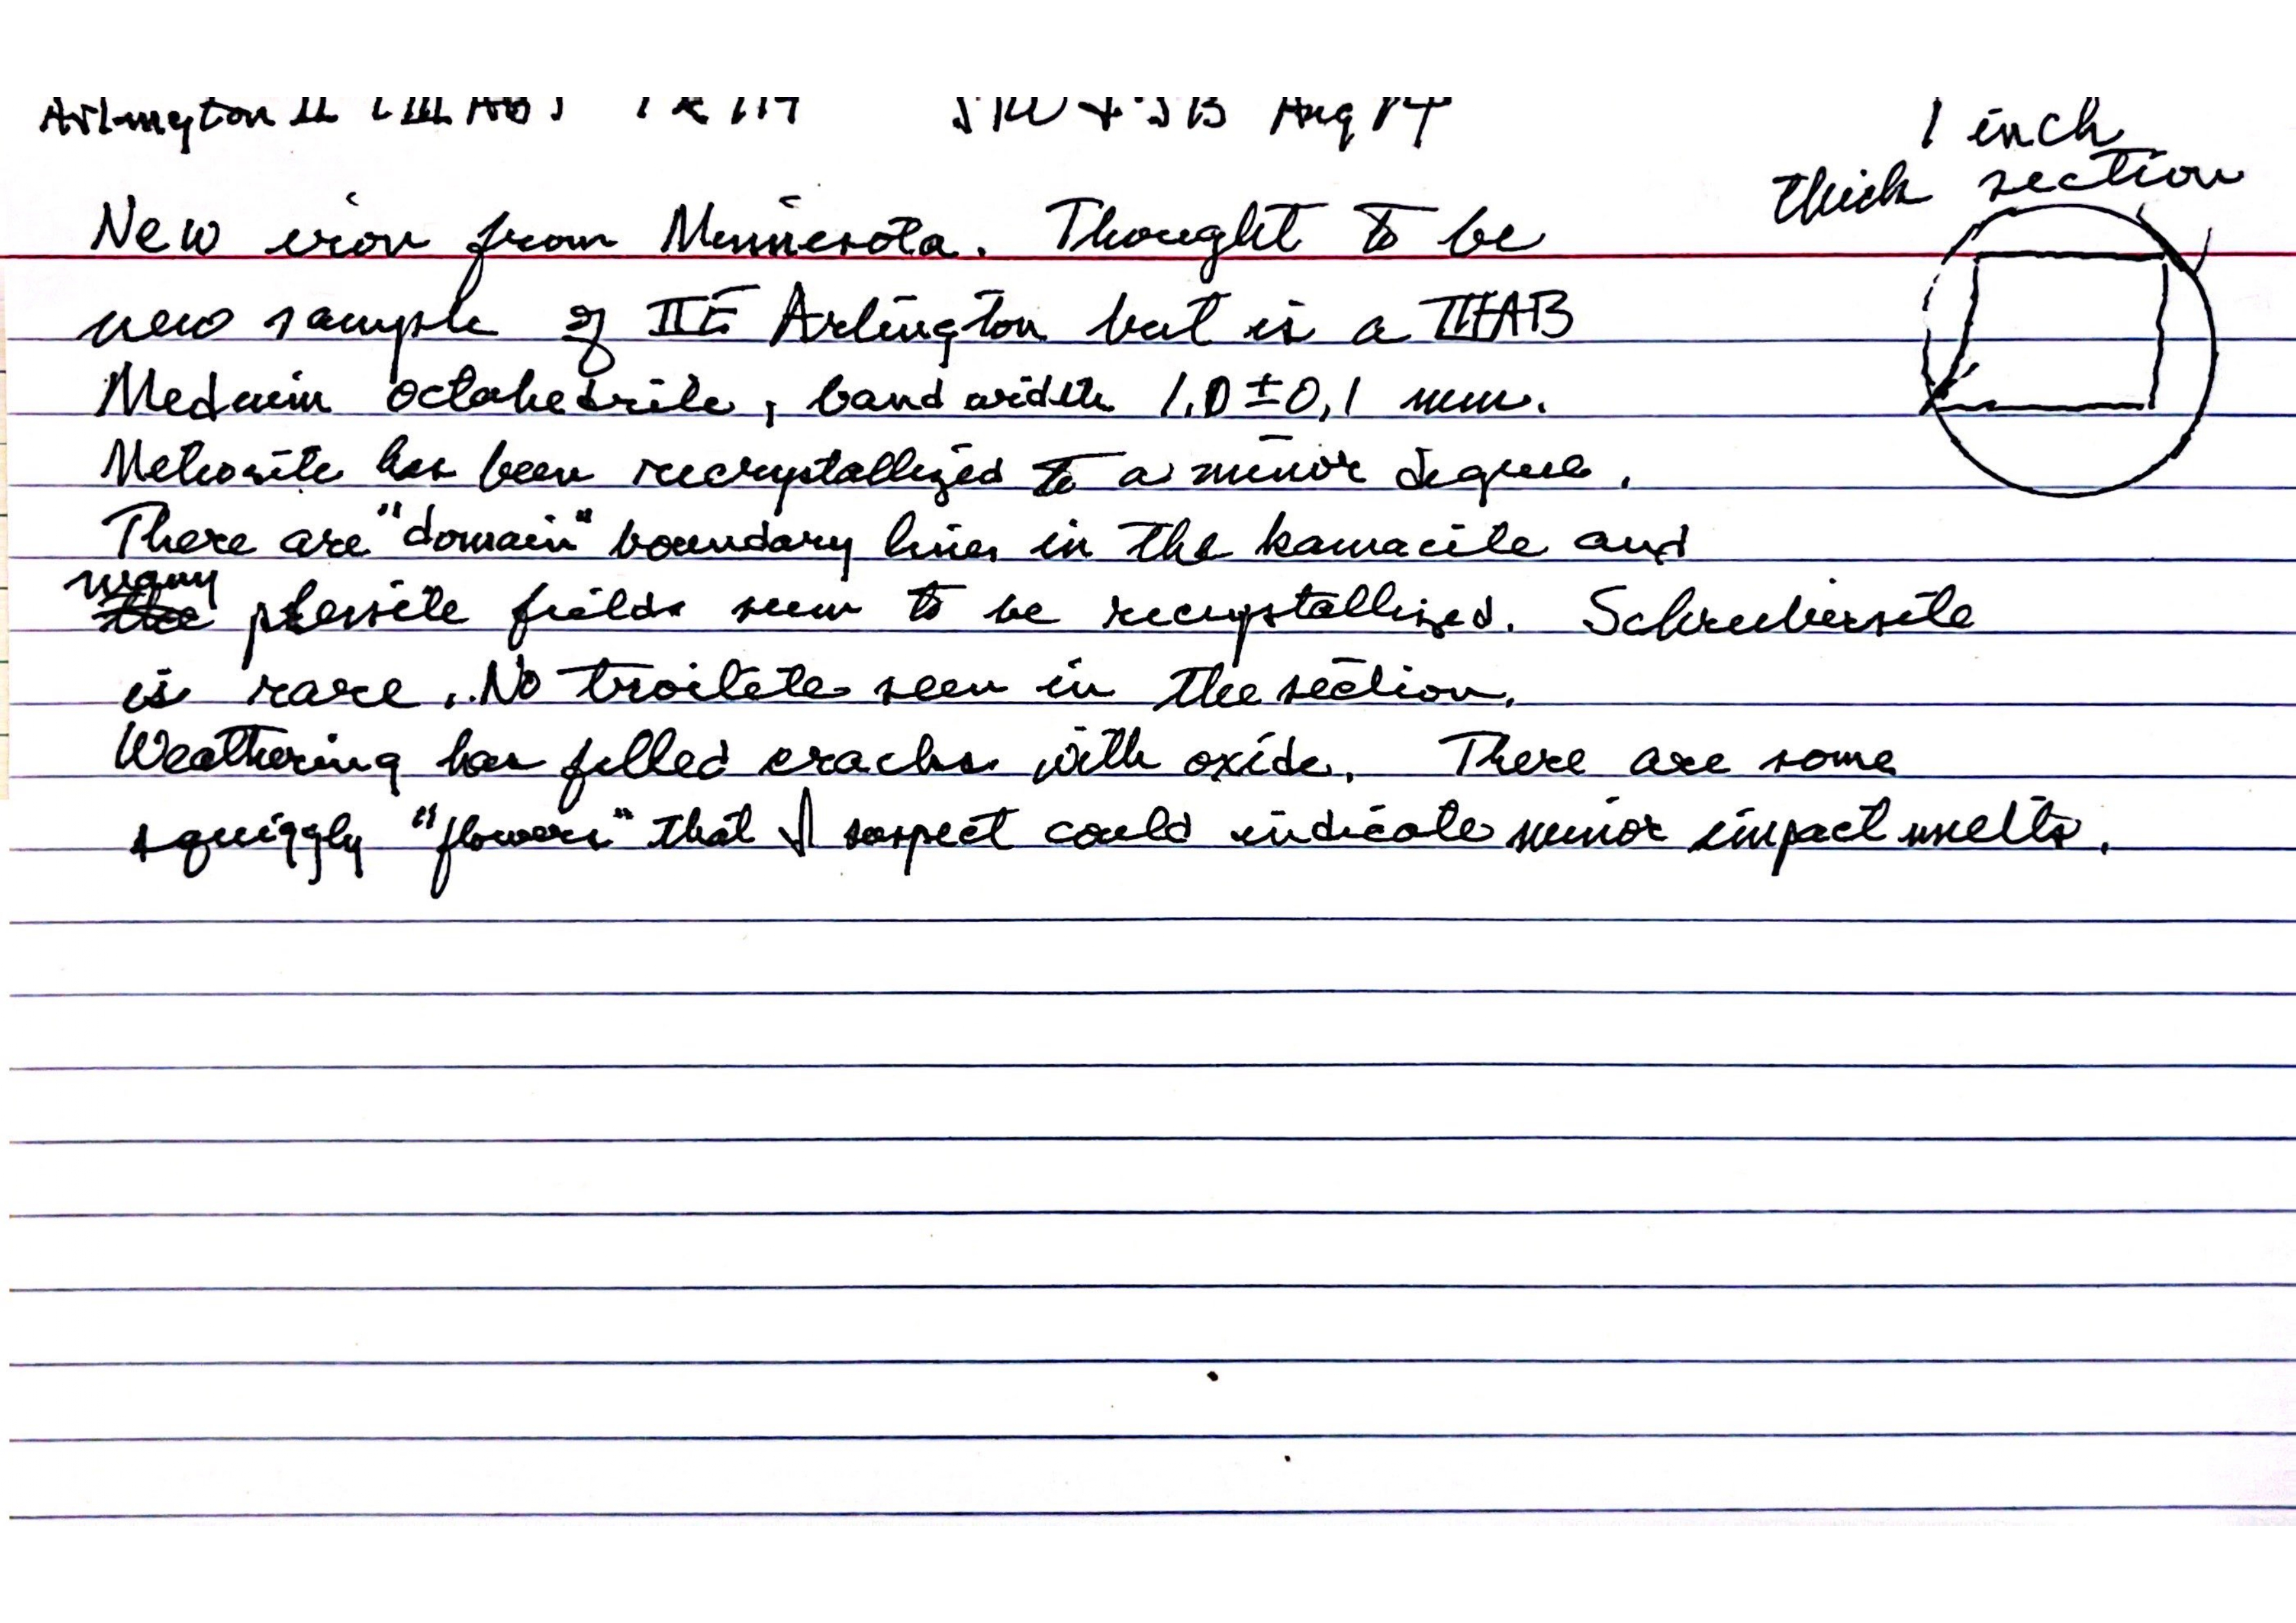 Arlington II (IIIAB) Aug
1 inch
thick section
New iron from Minnesota. Thought to be
new sample of IIE Arlington but is a IIIAB
Medium octahedrite, band width 1.0 ± 0.1 mm.
Meteorite has been recrystallized to a minor degree.
There are "domain" boundary lines in the kamacite and
many
the plessite fields seem to be recrystallized. Schreibersite
is rare. No troilite seen in the section.
Weathering has filled cracks with oxide. There are some
squiggly "flowers" that I suspect could indicate minor impact melts.